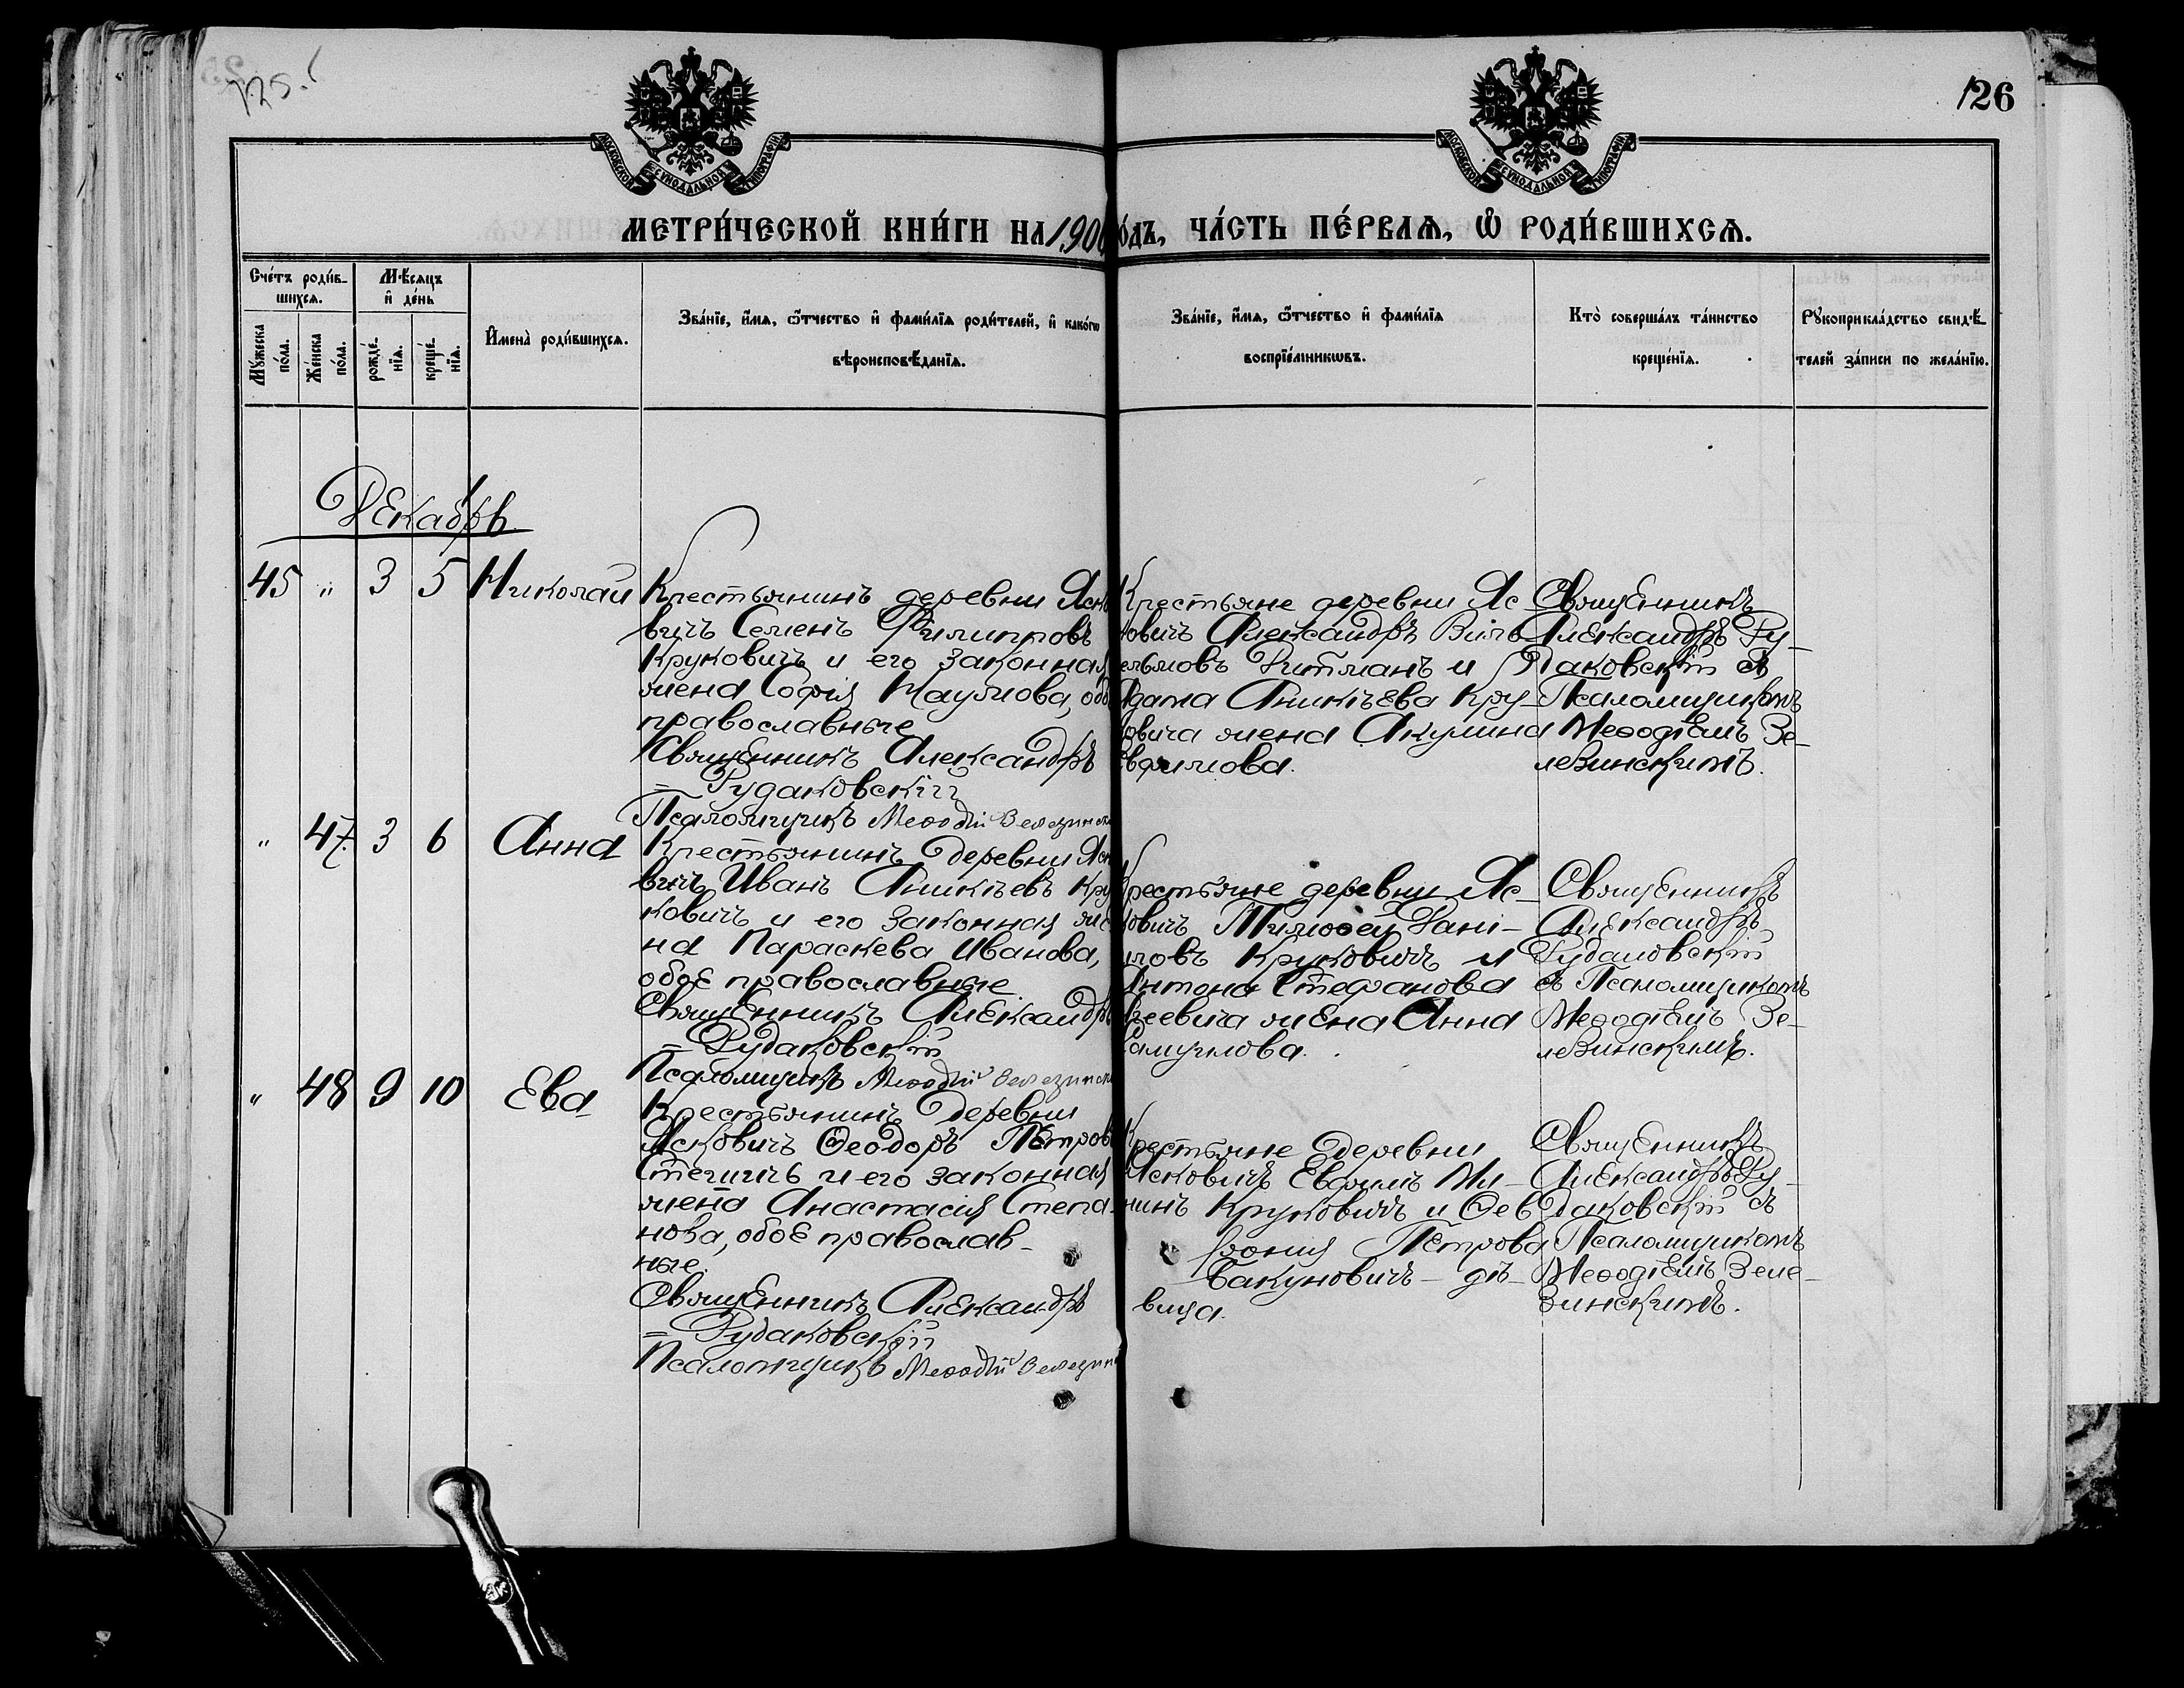 125.
126
МОСКОВСКОЙ СѴНОДАЛЬНОЙ ТИПОГРАФІИ
МОСКОВСКОЙ СѴНОДАЛЬНОЙ ТИПОГРАФІИ
МЕТРИ́ЧЕСКОЙ КНИ́ГИ НА 1900
О́ДЪ, ЧА́СТЬ ПЕ́РВАѦ, Ѡ҆ РОДИ́ВШИХСѦ.
Сче́тъ роди́в-
шихсѧ.
Мꙋ́жеска
по́ла.
Же́нска
по́ла.
Мѣ́сѧцъ
и҆ де́нь
рожде́-
нїѧ.
креще́-
нїѧ.
И҆мена̀ роди́вшихсѧ.
Зва́нїе, и҆́мѧ, ѻ҆́тчество и҆ фами́лїѧ роди́телей, и҆ како́гѡ
вѣроисповѣ́данїѧ.
Зва́нїе, и҆́мѧ, ѻ҆́тчество и҆ фами́лїѧ
воспрїе́мникѡвъ.
Кто̀ соверша́лъ та́инство
креще́нїѧ.
Рꙋкоприкла́дство свидѣ́-
телей за́писи по жела́нїю.
Декабрь
45 " 3 5 Николай
Крестьянинъ деревни Яско
вичъ Семенъ Филипповъ
Круковичъ и его законная
жена Софія Наумова, обо
православные
Священникъ Александръ
= Рудаковскій
Псаломщикъ Меѳодій Зелезинск
Крестьяне деревни Яс-
ковичъ Александръ Виль-
ельмовъ Дитманъ и
Адама Аникіева Кру-
ковича жена Акулина
Евфимова.
Священникъ
Александръ Ру-
даковскій съ
Псаломщикомъ
Меѳодіемъ Зе-
левинскимъ.
" 47. 3 6 Анна
Крестьянинъ деревни Яск
вичъ Иванъ Аникіевъ Кру
ковичъ и его законная же
на Параскева Иванова,
обое православные.
Священникъ Александръ
= Рудаковскій
Псаломщикъ Меѳодій Зелезинск
Крестьяне деревни Яс-
ковичъ Тимоѳей Дані-
иловъ Круковичъ и
Антона Стефанова
жена Анна
Самуилова.
Священникъ
Александръ
Рудаковскій
съ Псаломщикомъ
Меѳодіемъ Зе-
левинскимъ.
" 48 9 10 Ева
Крестьянинъ деревни
Ясковичъ Ѳеодоръ Петров
и его законная
жена Анастасія Степа-
нова, обое православ-
ные.
Священникъ Александръ
= Рудаковскій
Псаломщикъ Меѳодій Зелезин
Крестьяне деревни
Ясковичъ Евфимъ Ми-
нинъ Круковичъ и Ѳев-
ронія Петрова
Бакуновичъ - дѣ-
вица.
Священникъ
Александръ Ру-
даковскій съ
Псаломщикомъ
Меѳодіемъ Зеле-
зинскимъ.